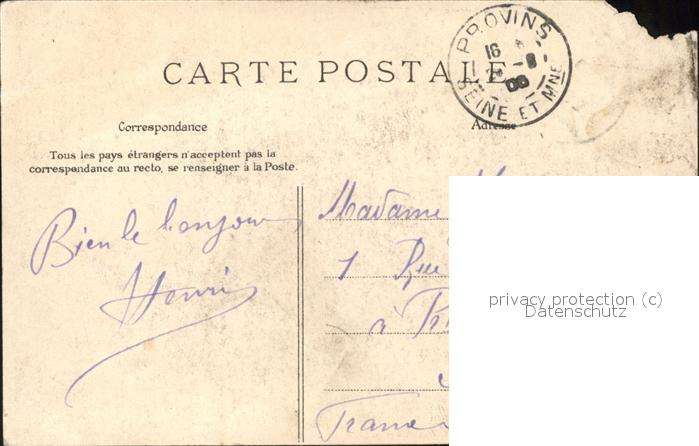 CARTE POSTALE
PROVINS
16
8
08
SEINE ET MNE
Correspondance
Adresse
Tous les pays étrangers n'acceptent pas la
correspondance au recto, se renseigner à la Poste.
Bien le bonjour
Henri
Madame
1 Rue
à
France
privacy protection (c)
Datenschutz